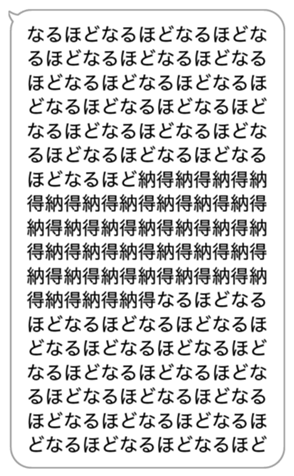 なるほどなるほどなるほどな
るほどなるほどなるほどなる
ほどなるほどなるほどなるほ
どなるほどなるほどなるほど
なるほどなるほどなるほどな
るほどなるほどなるほどなる
ほどなるほど納得納得納得納
得納得納得納得納得納得納得
納得納得納得納得納得納得納
得納得納得納得納得納得納得
納得納得納得納得納得納得納
得納得納得納得なるほどなる
ほどなるほどなるほどなるほ
どなるほどなるほどなるほど
なるほどなるほどなるほどな
るほどなるほどなるほどなる
ほどなるほどなるほどなるほ
どなるほどなるほどなるほど